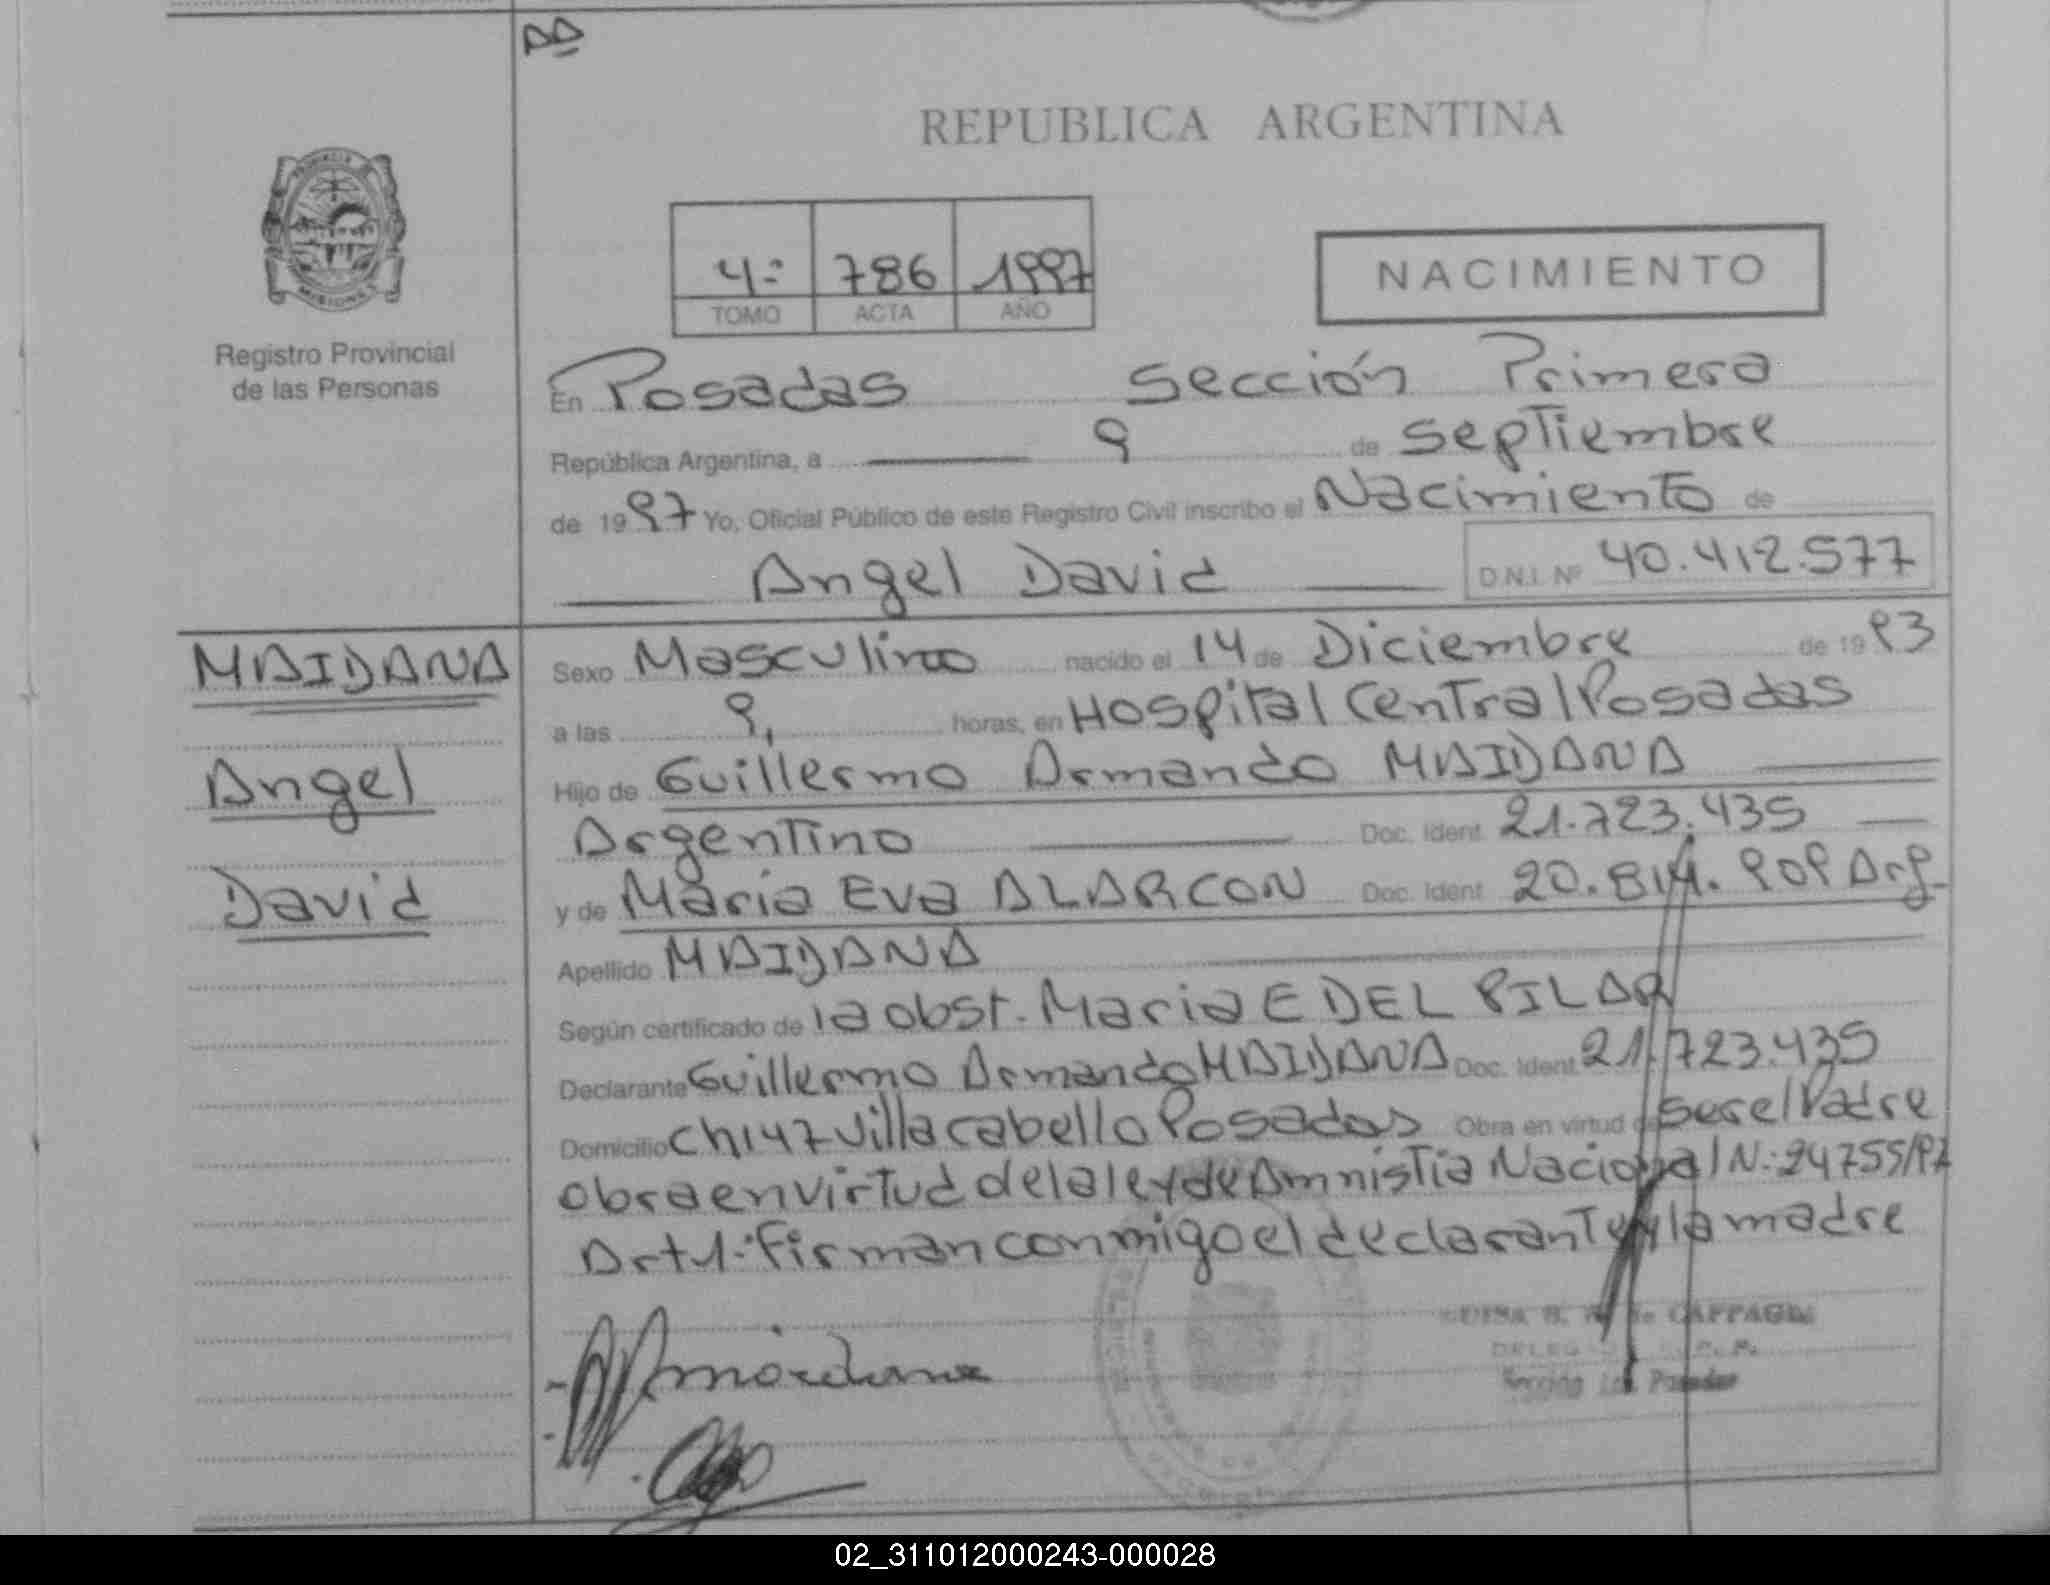 REPUBLICA ARGENTINA
PROVINCIA DE
MISIONES
Registro Provincial
de las Personas
4º 786 1997
TOMO ACTA AÑO
NACIMIENTO
En Posadas Sección Primera
República Argentina, a 9 de septiembre
de 1997 Yo, Oficial Público de este Registro Civil inscribo el Nacimiento de
Angel David D.N.I. Nº 40.412.577
MAIDANA
Angel
David
Sexo Masculino nacido el 14 de Diciembre de 1993
a las 9, horas, en Hospital Central Posadas
Hijo de Guillermo Armando MAIDANA
Argentino Doc. Ident. 21.723.435
y de Maria Eva ALARCON Doc. Ident. 20.814.909 Arg.
Apellido MAIDANA
Según certificado de la obst. Maria E DEL PILAR
Declarante Guillermo Armando MAIDANA Doc. Ident. 21.723.435
Domicilio Ch 147 Villa cabello Posadas Obra en virtud de ser el Padre
obra en virtud de la ley de Amnistia Nacional N.: 24755/97
Art 1.- Firman conmigo el declarante y la madre
de CAPPAGLI
Sección 1ra Posadas
02_311012000243-000028